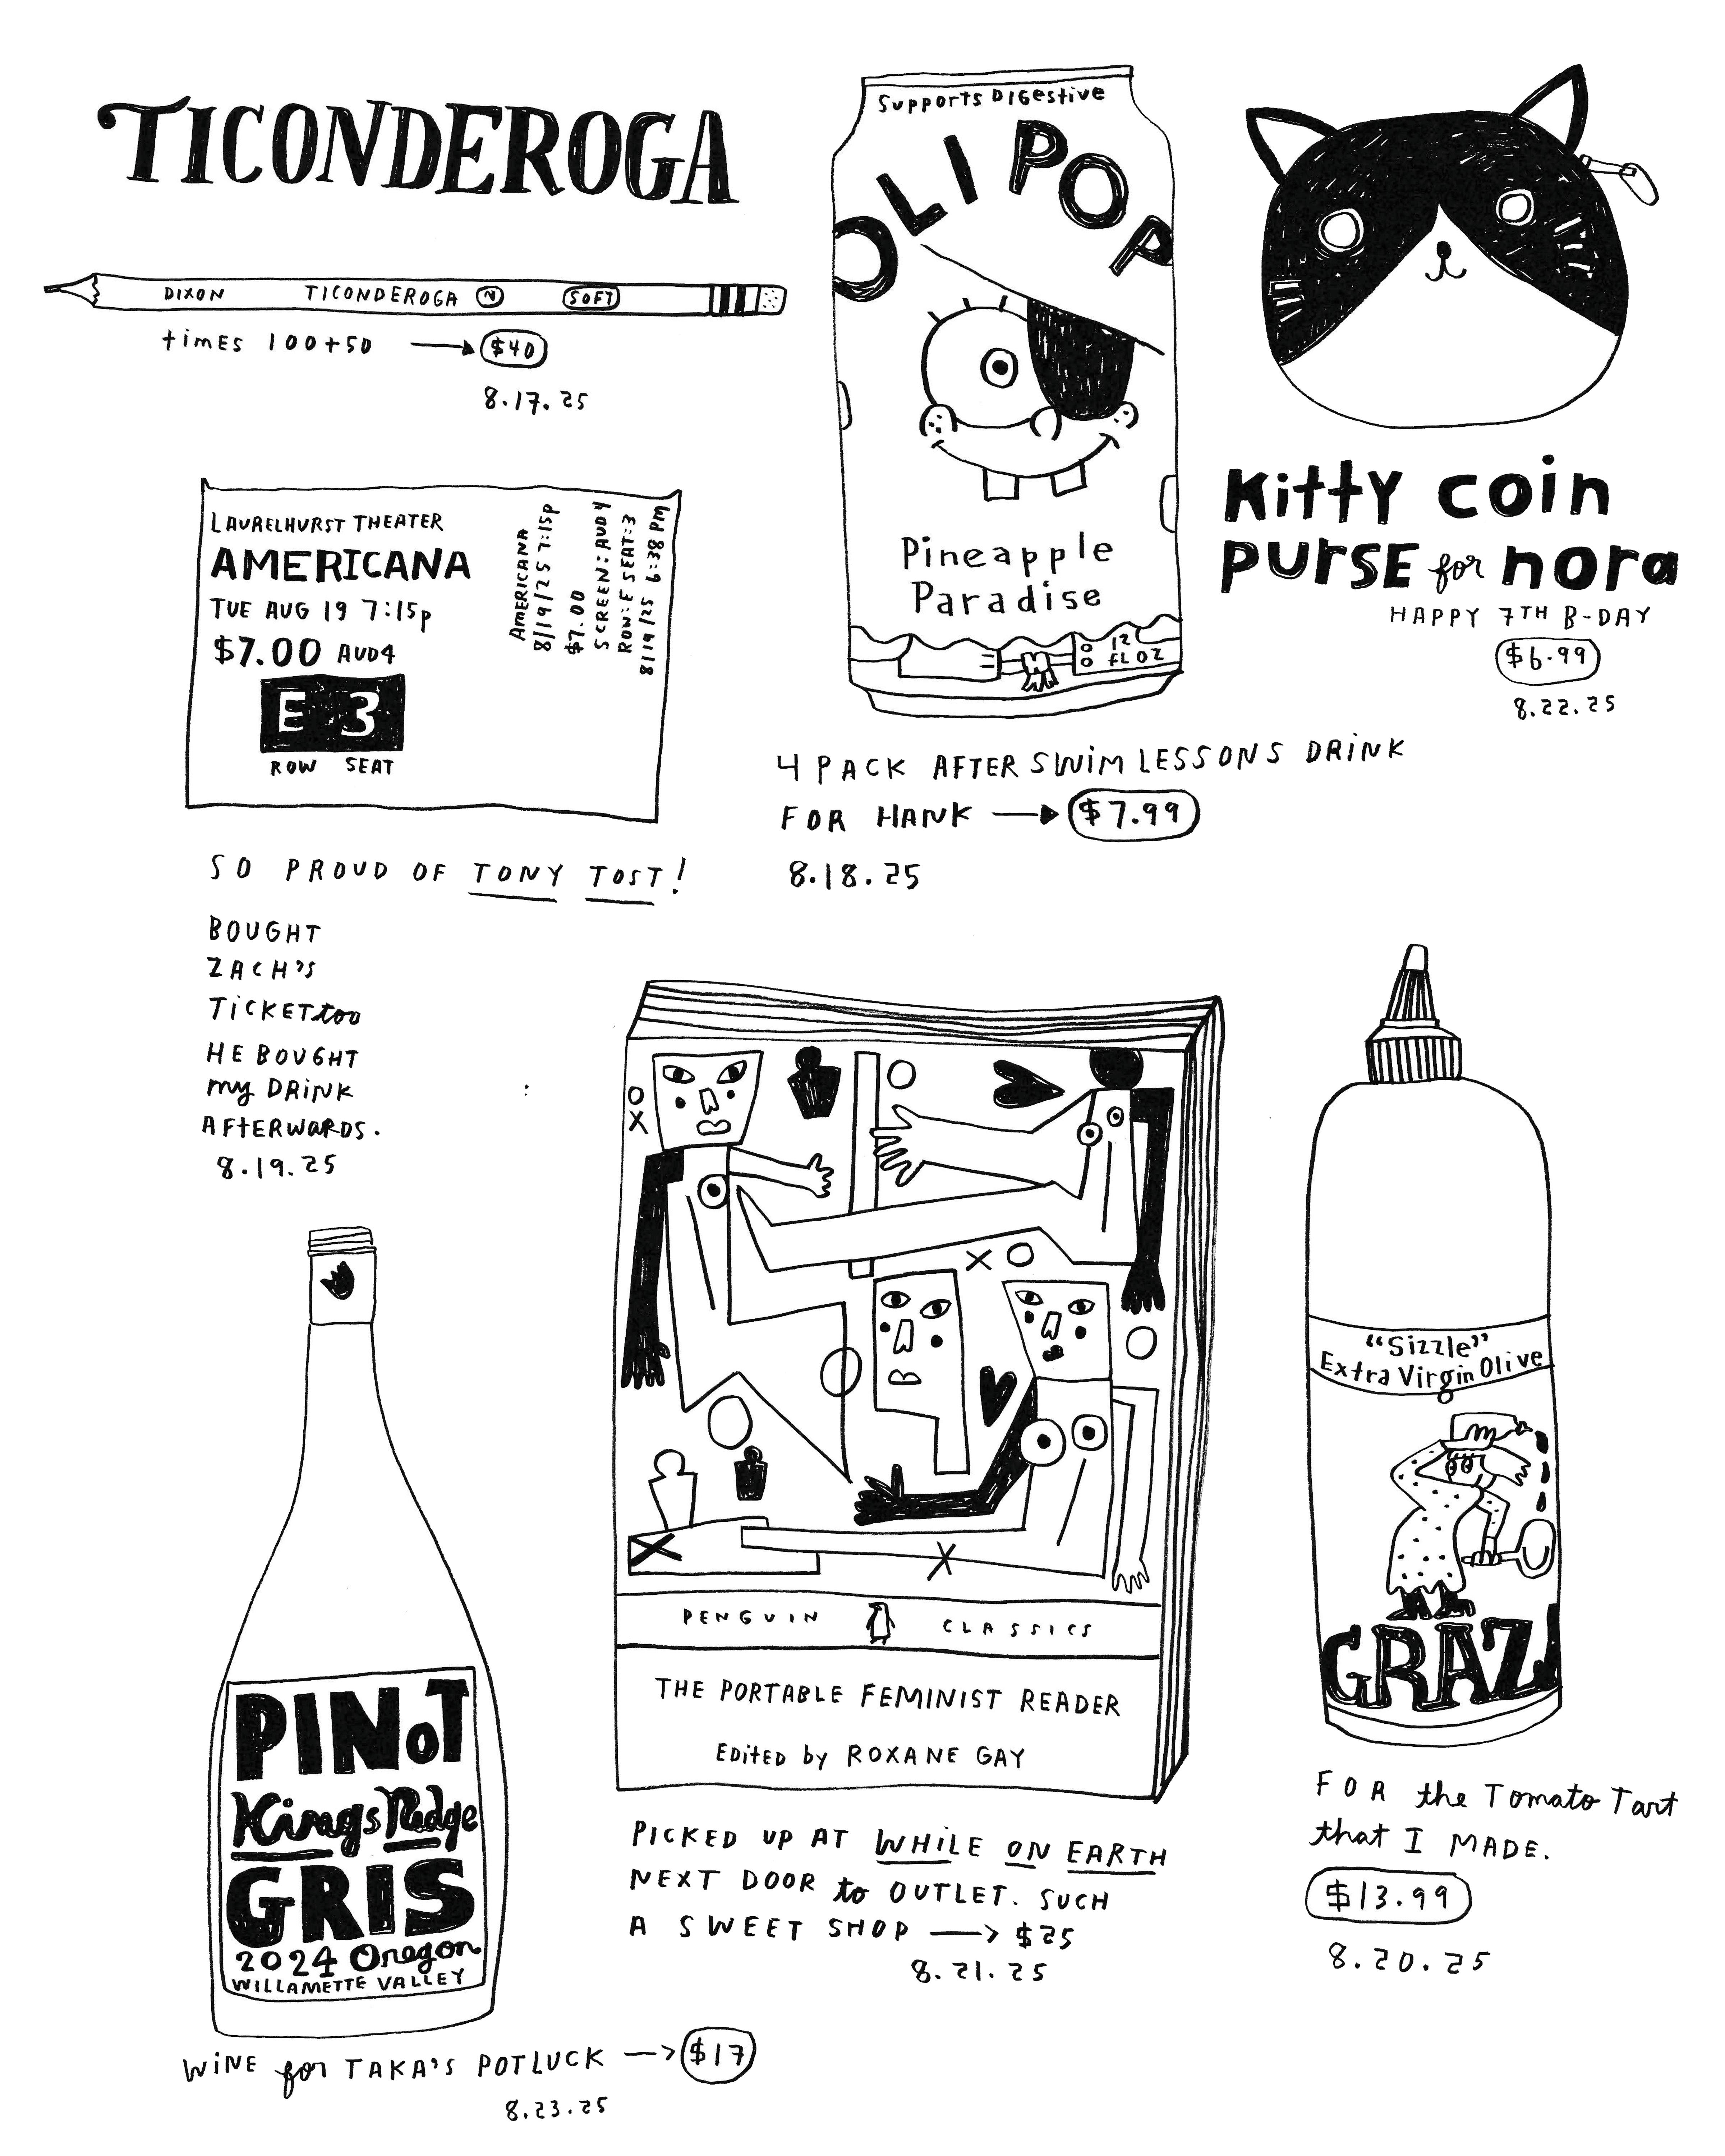 TICONDEROGA
DIXON TICONDEROGA N SOFT
times 100+50 $40
8.17.25
Supports Digestive
OLIPOP
Pineapple
Paradise
12
FL OZ
4 PACK AFTER SWIM LESSONS DRINK
FOR HANK $7.99
8.18.25
Kitty coin
purse for nora
HAPPY 7TH B-DAY
$6.99
8.22.25
LAURELHURST THEATER
AMERICANA
TUE AUG 19 7:15p
$7.00 AUD4
E 3
ROW SEAT
AMERICANA
8/19/25 7:15p
$7.00
SCREEN: AUD 4
ROW: E SEAT: 3
8/19/25 6:38 PM
SO PROUD OF TONY TOST!
BOUGHT
ZACH'S
TICKET too
HE BOUGHT
my DRINK
AFTERWARDS.
8.19.25
PENGUIN CLASSICS
THE PORTABLE FEMINIST READER
Edited by ROXANE GAY
PICKED UP AT WHILE ON EARTH
NEXT DOOR to OUTLET. SUCH
A SWEET SHOP $25
8.21.25
"Sizzle"
Extra Virgin Olive
GRAZA
FOR the Tomato Tart
that I MADE.
$13.99
8.20.25
PINOT
Kings Ridge
GRIS
2024 Oregon
WILLAMETTE VALLEY
WINE for TAKA'S POTLUCK $17
8.23.25